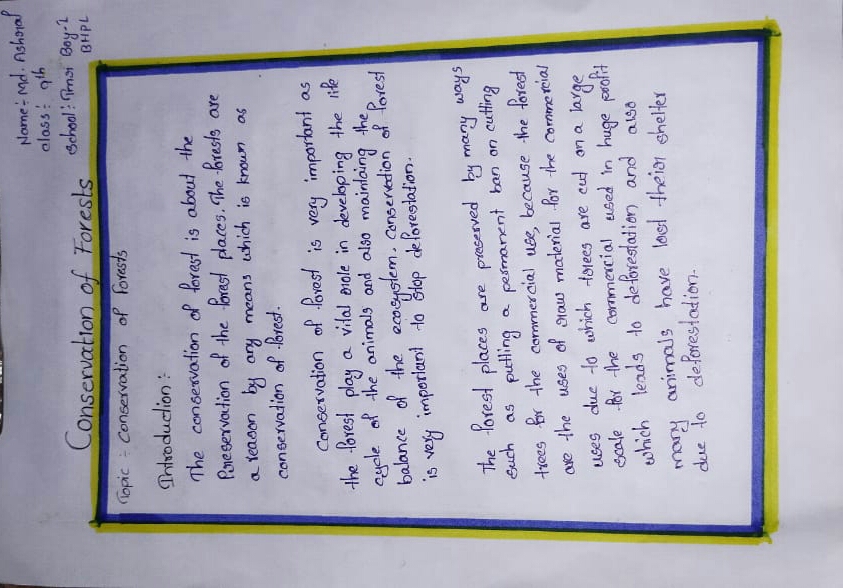 Name:- Md. Ashoraf
class: 9th
school: Amoi Boy-1
BHPL
Conservation of Forests
Topic :- Conservation of Forests
Introduction :-
The conservation of forest is about the
Pireservation of the forest places. The forests are
a reason by any means which is known as
conservation of forest.
Conservation of forest is very important as
the forest play a vital role in developing the life
cycle of the animals and also maintaing the
balance of the ecosystem. Conservation of forest
is very important to stop deforestation.
The forest places are preserved by many ways
such as putting a permanent ban on cutting
trees for the commercial use, because the forest
are the uses of raw material for the commercial
uses due to which trees are cut on a large
scale for the commercial used in huge profit
which leads to deforestation and also
many animals have lost their shelter
due to deforestation.